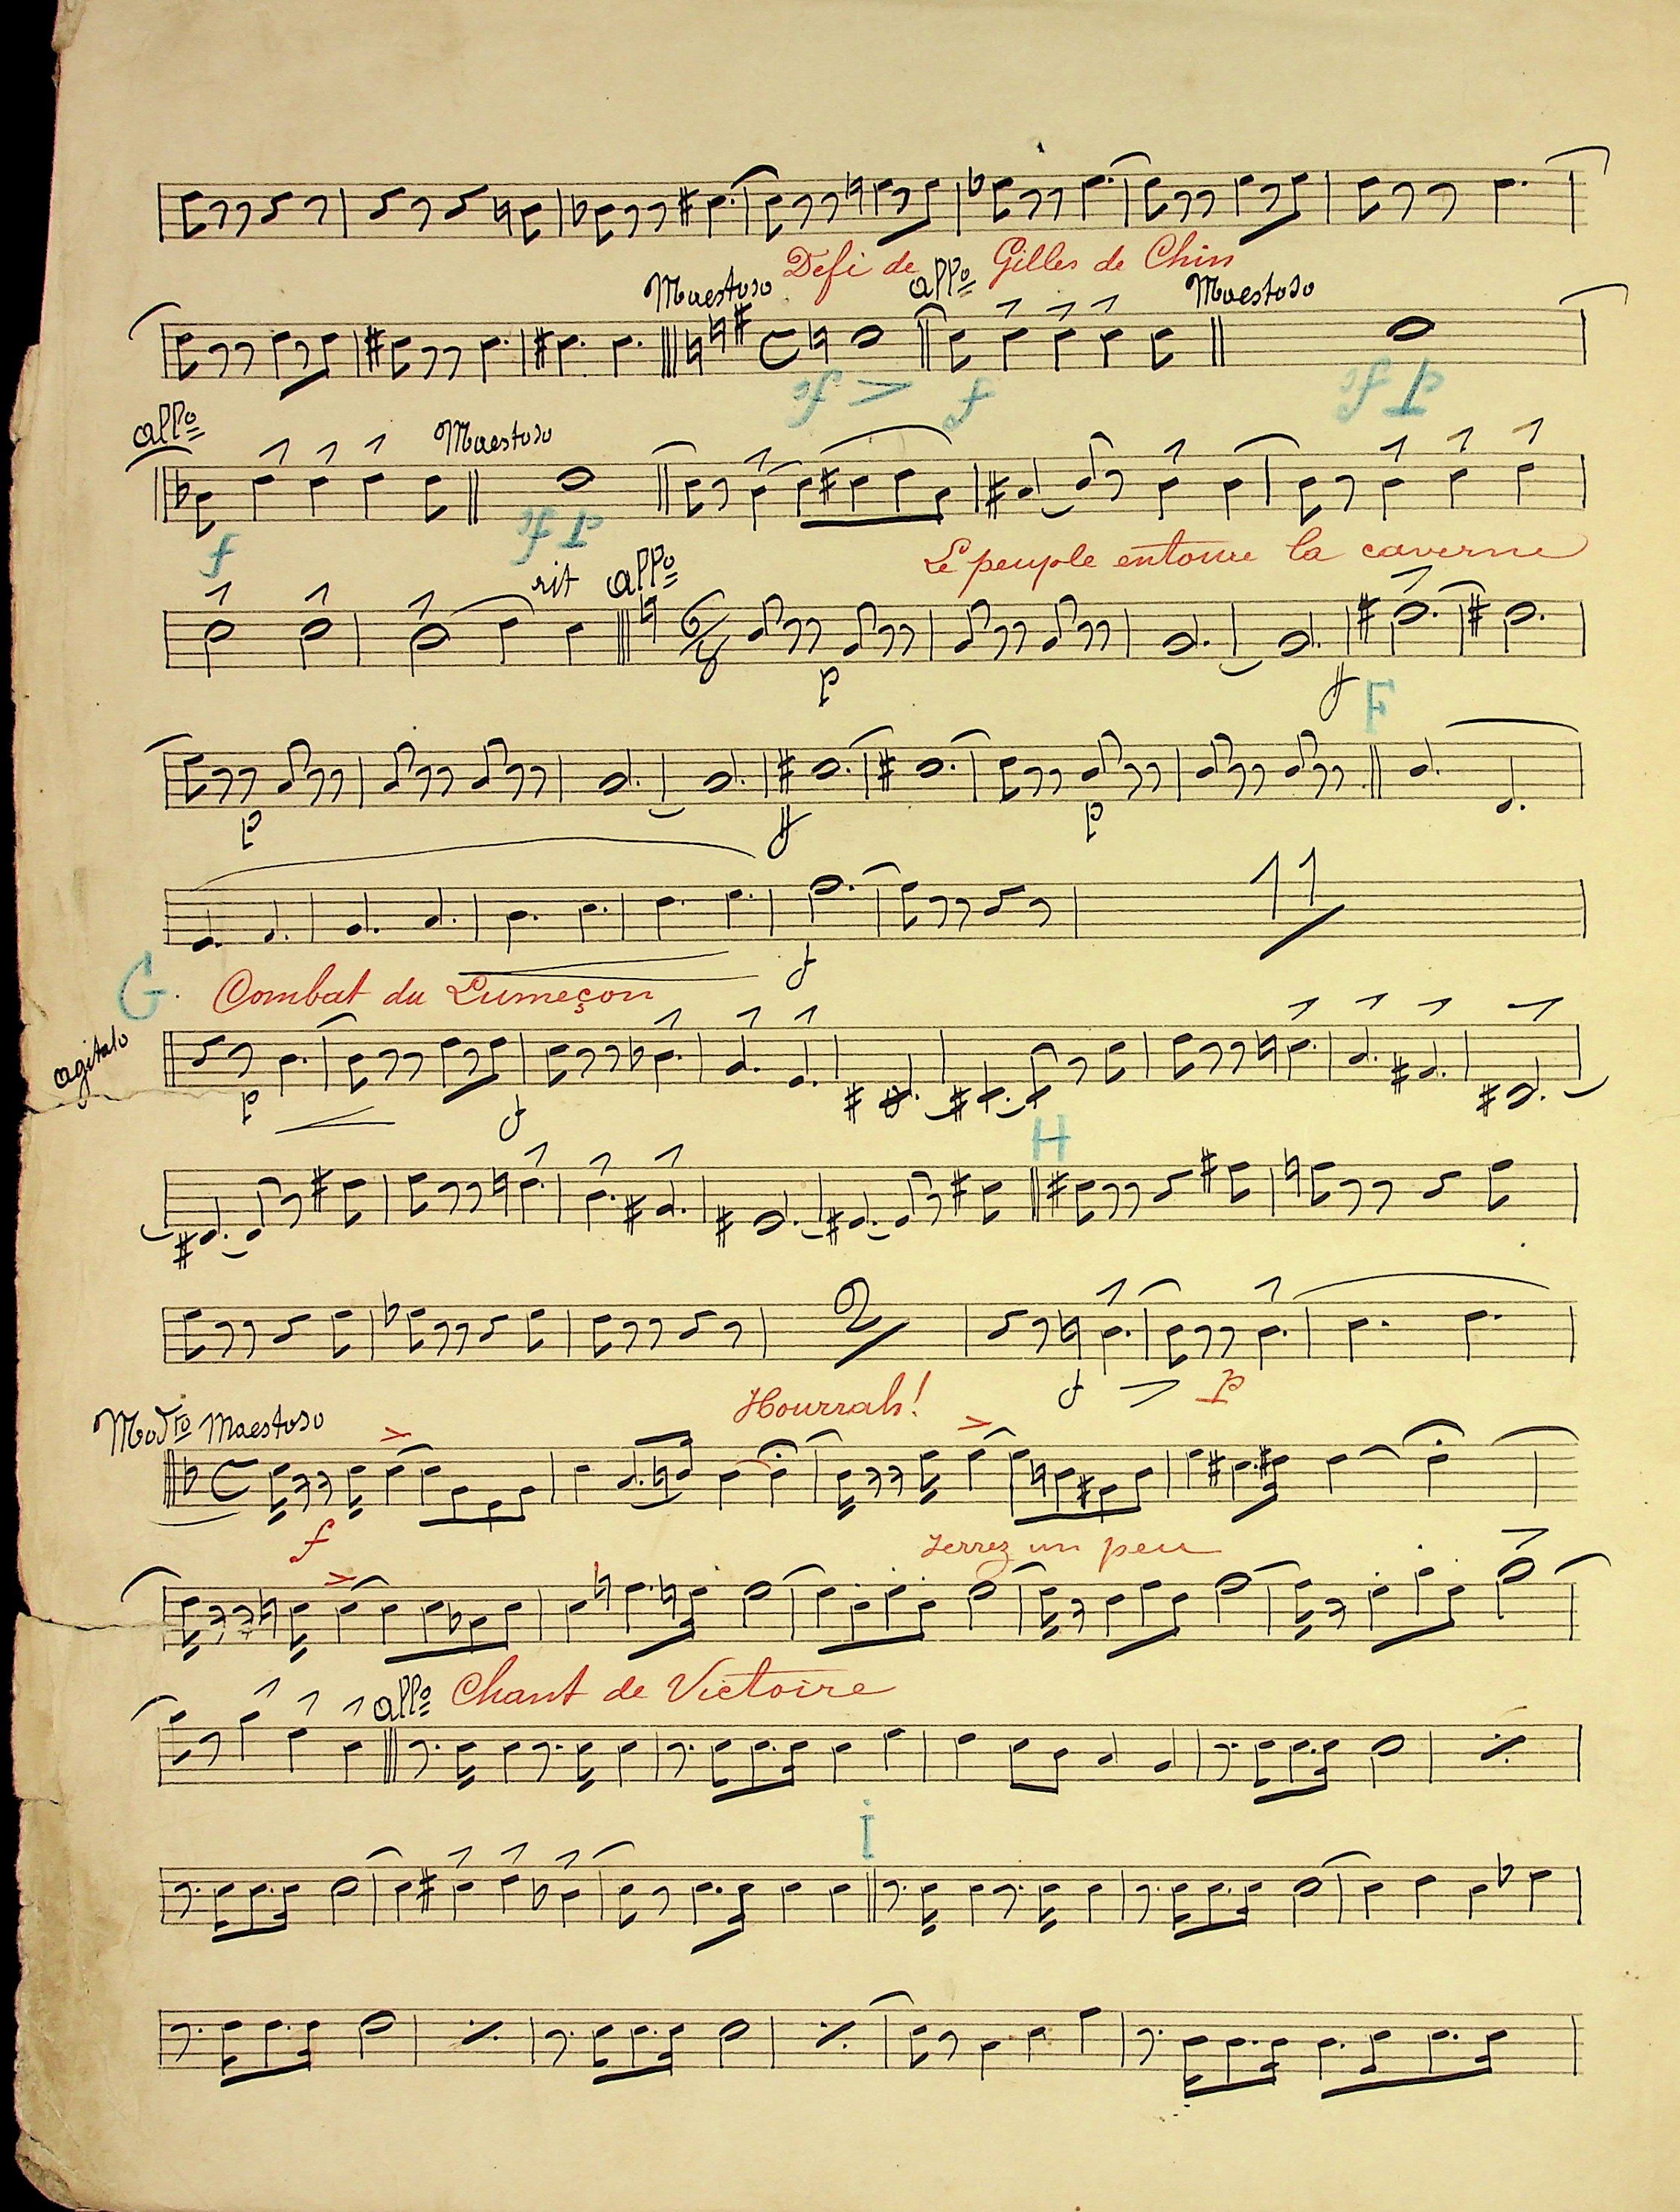 Défi de Gilles de Chin
Maestoso allo Maestoso
sf f sf p
allo Maestoso
f sf p
Le peuple entoure la caverne
rit allo
6/8
p ff F
p ff p
11
f
G. Combat du Lumeçon
agitato
p f
H
2
Hourrah! f p
Modto Maestoso
f
serrez un peu
allo Chant de Victoire
I